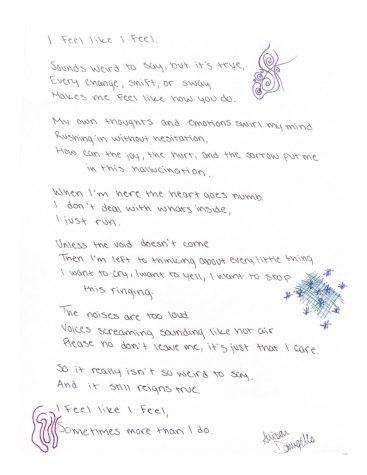 I Feel like I Feel.
Sounds weird to say, but it's true,
Every change, shift, or sway
Makes me feel like how you do.
My own thoughts and emotions swirl my mind
Rushing in without hesitation,
How can the joy, the hurt, and the sorrow put me
in this hallucination.
When I'm here the heart goes numb.
I don't deal with whats inside,
I just run.
Unless the void doesn't come
Then I'm left to thinking about every little thing
I want to cry, I want to yell, I want to stop
this ringing.
The noises are too loud
Voices screaming, sounding like hot air
Please no don't leave me, it's just that I care.
So it really isn't so weird to say.
And it still reigns true.
I Feel like I Feel,
Sometimes more than I do.